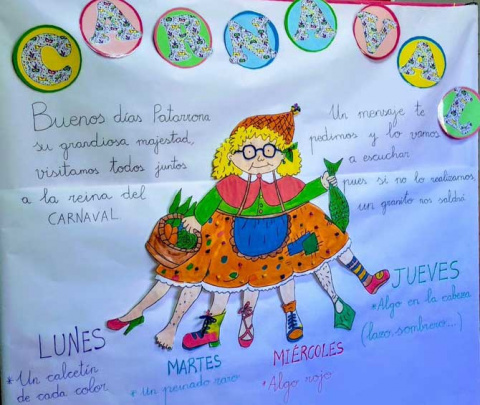 CARNAVAL
Buenos días Patarrona
su grandiosa majestad,
visitamos todos juntos
a la reina del
CARNAVAL
Un mensaje te
pedimos y lo vamos
a escuchar
pues si no lo realizamos,
un granito nos saldrá
LUNES
* Un calcetín
de cada color
MARTES
* Un peinado raro
MIÉRCOLES
* Algo rojo
JUEVES
* Algo en la cabeza
(lazo, sombrero...)